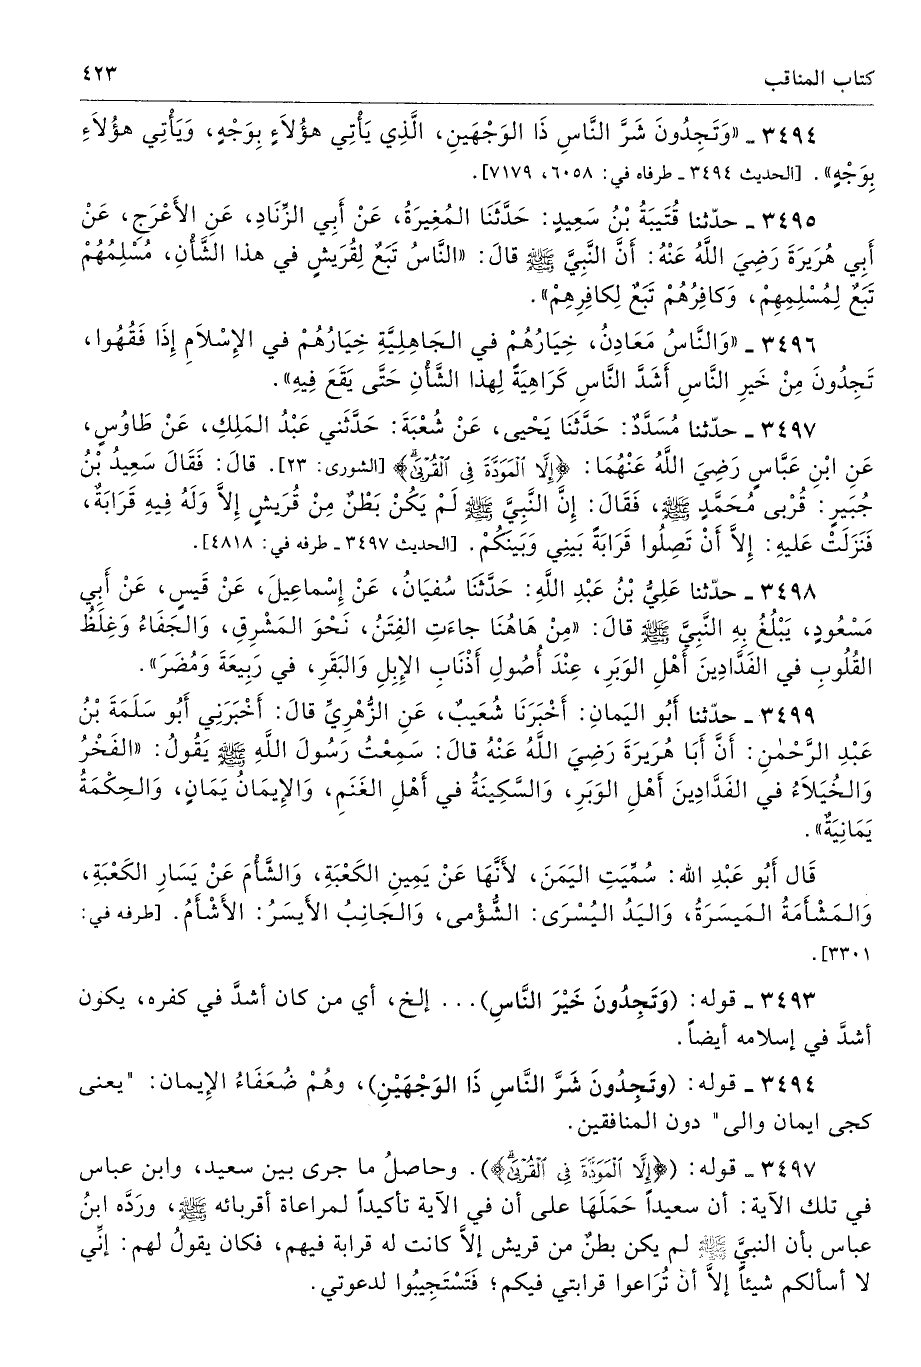 كتاب المناقب ٤٢٣
٣٤٩٤ ـ «وَتَجِدُونَ شَرَّ النَّاسِ ذَا الوَجْهَينِ، الَّذِي يَأْتِي هؤُلاَءِ بِوَجْهٍ، وَيَأْتِي هؤُلاَءِ
بِوَجْهٍ». [الحديث ٣٤٩٤ ـ طرفاه في: ٦٠٥٨، ٧١٧٩].
٣٤٩٥ ـ حدّثنا قُتَيبَةُ بْنُ سَعِيدٍ: حَدَّثَنَا المُغِيرَةُ، عَنْ أَبِي الزِّنَادِ، عَنِ الأَعْرَجِ، عَنْ
أَبِي هُرَيرَةَ رَضِيَ اللَّهُ عَنْهُ: أَنَّ النَّبِيَّ ﷺ قالَ: «النَّاسُ تَبَعٌ لِقُرَيشٍ في هذا الشَّأْنِ، مُسْلِمُهُمْ
تَبَعٌ لِمُسْلِمِهِمْ، وَكافِرُهُمْ تَبَعٌ لِكافِرِهِمْ».
٣٤٩٦ ـ «وَالنَّاسُ مَعَادِنُ، خِيَارُهُمْ في الجَاهِلِيَّةِ خِيَارُهُمْ في الإِسْلاَمِ إِذَا فَقُهُوا،
تَجِدُونَ مِنْ خَيرِ النَّاسِ أَشَدَّ النَّاسِ كَرَاهِيَةً لِهذا الشَّأْنِ حَتَّى يَقَعَ فِيهِ».
٣٤٩٧ ـ حدّثنا مُسَدَّدٌ: حَدَّثَنَا يَحْيى، عَنْ شُعْبَةَ: حَدَّثَني عَبْدُ المَلِكِ، عَنْ طَاوُسٍ،
عَنِ ابْنِ عَبَّاسٍ رَضِيَ اللَّهُ عَنْهُمَا: ﴿إِلَّا الْمَوَدَّةَ فِي الْقُرْبَىٰ﴾ [الشورى: ٢٣]. قالَ: فَقَالَ سَعِيدُ بْنُ
جُبَيرٍ: قُرْبى مُحَمَّدٍ ﷺ، فَقَالَ: إِنَّ النَّبِيَّ ﷺ لَمْ يَكُنْ بَطْنٌ مِنْ قُرَيشٍ إِلاَّ وَلَهُ فِيهِ قَرَابَةٌ،
فَنَزَلَتْ عليهِ: إِلاَّ أَنْ تَصِلُوا قَرَابَةً بَينِي وَبَينَكُمْ. [الحديث ٣٤٩٧ ـ طرفه في: ٤٨١٨].
٣٤٩٨ ـ حدّثنا عَلِيُّ بْنُ عَبْدِ اللَّهِ: حَدَّثَنَا سُفيَانُ، عَنْ إِسْماعِيلَ، عَنْ قَيسٍ، عَنْ أَبِي
مَسْعُودٍ، يَبْلُغُ بِهِ النَّبِيَّ ﷺ قالَ: «مِنْ هَاهُنَا جاءَتِ الفِتَنُ، نَحْوَ المَشْرِقِ، وَالجَفَاءُ وَغِلَظُ
القُلُوبِ في الفَدَّادِينَ أَهْلِ الوَبَرِ، عِنْدَ أُصُولِ أَذْنَابِ الإِبِلِ وَالبَقَرِ، في رَبِيعَةَ وَمُضَرَ».
٣٤٩٩ ـ حدّثنا أَبُو اليَمانِ: أَخْبَرَنَا شُعَيبٌ، عَنِ الزُّهْرِيِّ قالَ: أَخْبَرَنِي أَبُو سَلَمَةَ بْنُ
عَبْدِ الرَّحْمٰنِ: أَنَّ أَبَا هُرَيرَةَ رَضِيَ اللَّهُ عَنْهُ قالَ: سَمِعْتُ رَسُولَ اللَّهِ ﷺ يَقُولُ: «الفَخْرُ
وَالخُيَلاَءُ في الفَدَّادِينَ أَهْلِ الوَبَرِ، وَالسَّكِينَةُ في أَهْلِ الغَنَمِ، وَالإِيمَانُ يَمَانٍ، وَالحِكْمَةُ
يَمَانِيَةٌ».
قَال أَبُو عَبْدِ الله: سُمِّيَتِ اليَمَنَ، لأَنَّهَا عَنْ يَمِينِ الكَعْبَةِ، وَالشَّأمَ عَنْ يَسَارِ الكَعْبَةِ،
وَالمَشْأَمَةُ المَيسَرَةُ، وَاليَدُ اليُسْرَى: الشُّؤْمى، وَالجَانِبُ الأَيسَرُ: الأَشْأَمُ. [طرفه في:
٣٣٠١].
٣٤٩٣ ـ قوله: (وَتَجِدُونَ خَيْرَ النَّاسِ)... إلخ، أي من كان أشدَّ في كفره، يكون
أشدَّ في إسلامه أيضاً.
٣٤٩٤ ـ قوله: (وتَجِدُونَ شَرَّ النَّاسِ ذَا الوَجْهَيْنِ)، وهُمْ ضُعَفَاءُ الإِيمان: "يعنى
كجى ايمان والى" دون المنافقين.
٣٤٩٧ ـ قوله: (﴿إِلَّا الْمَوَدَّةَ فِي الْقُرْبَىٰ﴾). وحاصلُ ما جرى بين سعيد، وابن عباس
في تلك الآية: أن سعيداً حَمَلَهَا على أن في الآية تأكيداً لمراعاة أقربائه ﷺ، وردَّه ابنُ
عباس بأن النبيَّ ﷺ لم يكن بطنٌ من قريش إلاَّ كانت له قرابة فيهم، فكان يقولُ لهم: إنِّي
لا أسألكم شيئاً إلاَّ أن تُرَاعوا قرابتي فيكم؛ فَتَسْتَجِيبُوا لدعوتي.